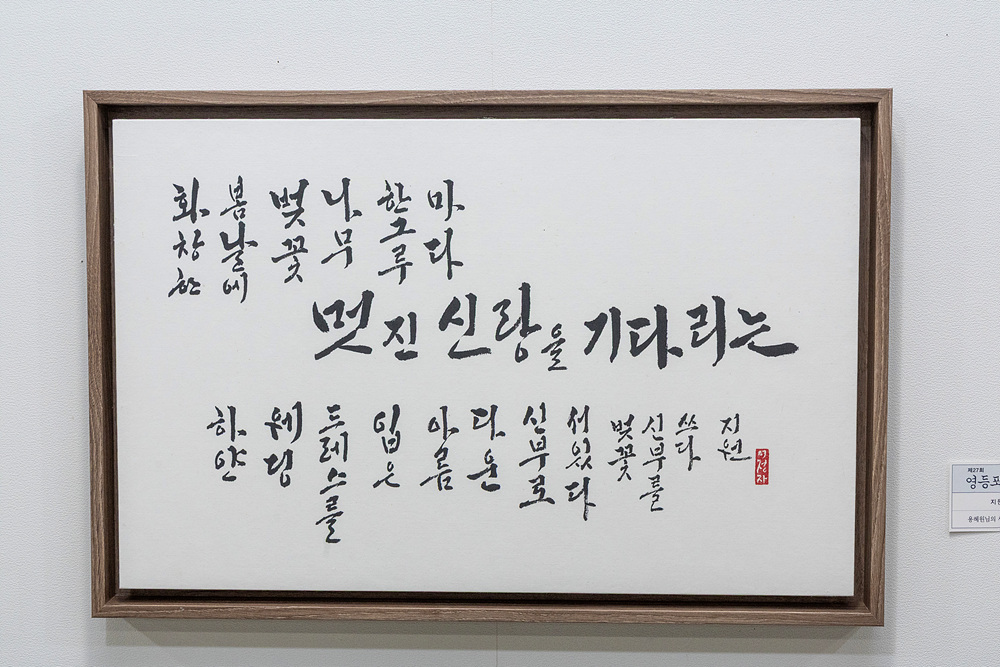 화창한
봄날에
벚꽃
나무
한그루
마다
멋진 신랑을 기다리는
하얀
웨딩
드레스를
입은
아름
다운
신부로
서있다
벚꽃
신부를
쓰다
지원
이정자
제27회
영등포
용혜원님의